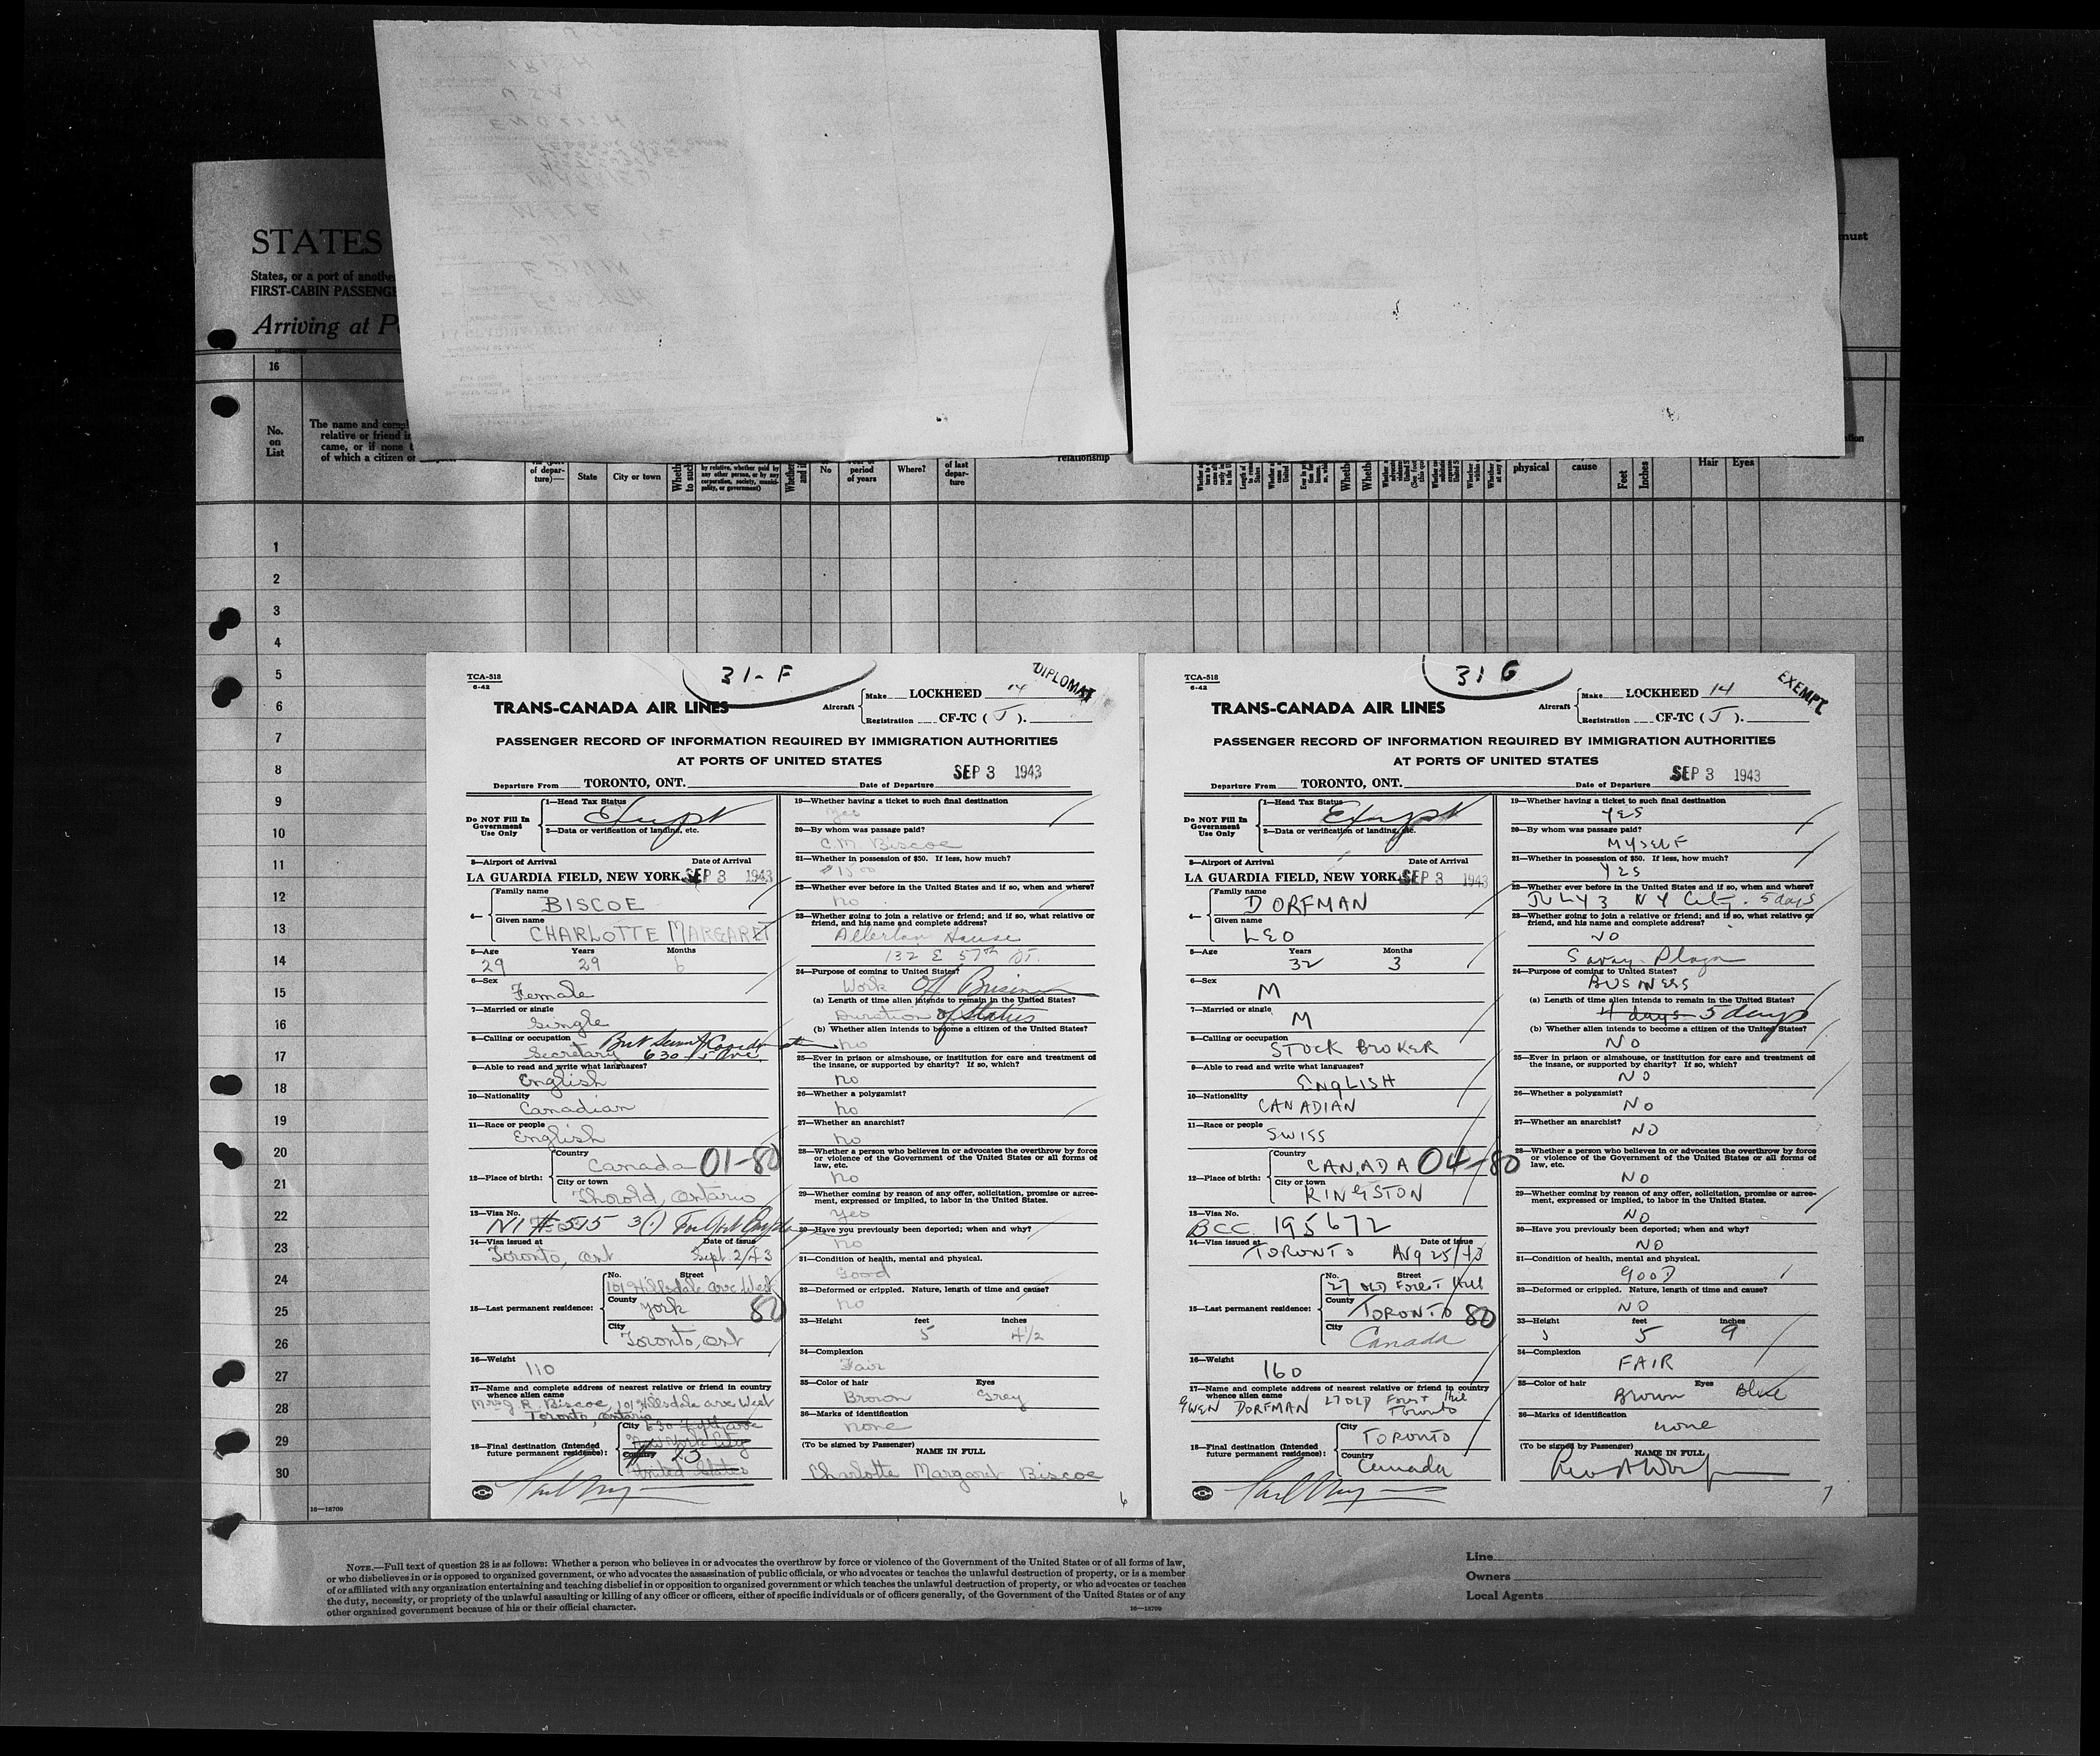 STATES
States, or a port of another
FIRST-CABIN PASSENGE
Arriving at P
must
16
No.
on
List
The name and compl
relative or friend in
came, or if none t
of which a citizen or
of depar-
ture)—
State
City or town
by relative, whether paid by
any other person, or by any
corporation, society, munici-
pality, or government)
No
period
of years
Where?
of last
depar-
ture
relationship
physical
cause
Feet
Inches
Hair
Eyes
1
2
3
4
5
6
7
8
9
10
11
12
13
14
15
16
17
18
19
20
21
22
23
24
25
26
27
28
29
30
16—18709
TCA-518
6-42
31-F
DIPLOMAT
TRANS-CANADA AIR LINES
Aircraft
Make LOCKHEED 14
Registration CF-TC ( J ).
PASSENGER RECORD OF INFORMATION REQUIRED BY IMMIGRATION AUTHORITIES
AT PORTS OF UNITED STATES
SEP 3 1943
Departure From TORONTO, ONT. Date of Departure
Do NOT Fill In
Government
Use Only
1—Head Tax Status
Exempt
2—Data or verification of landing, etc.
3—Airport of Arrival Date of Arrival
LA GUARDIA FIELD, NEW YORK. SEP 3 1943
4—
Family name
BISCOE
Given name
CHARLOTTE MARGARET
5—Age Years Months
29 29 6
6—Sex
Female
7—Married or single
Single
8—Calling or occupation
Secretary 630 5 Ave.
9—Able to read and write what languages?
English
10—Nationality
Canadian
11—Race or people
English
12—Place of birth:
Country
Canada 01-80
City or town
Thorold, Ontario
13—Visa No.
NI # 515 3(1)
14—Visa issued at Date of issue
Toronto, Ont Sept. 2/43
15—Last permanent residence:
No. Street
101 Hillsdale ave West
County
York 80
City
Toronto, Ont
16—Weight
110
17—Name and complete address of nearest relative or friend in country
whence alien came
Mrs J. R. Biscoe, 101 Hillsdale ave West
Toronto, Ontario
18—Final destination (Intended
future permanent residence):
City 630 Fifth ave
New York City
Country 23
United States
19—Whether having a ticket to such final destination
Yes
20—By whom was passage paid?
C.M. Biscoe
21—Whether in possession of $50. If less, how much?
$15.00
22—Whether ever before in the United States and if so, when and where?
no
23—Whether going to join a relative or friend; and if so, what relative or
friend, and his name and complete address?
Allerton House
132 E 57th St.
24—Purpose of coming to United States?
Work Off Business
(a) Length of time alien intends to remain in the United States?
Duration of Status
(b) Whether alien intends to become a citizen of the United States?
no
25—Ever in prison or almshouse, or institution for care and treatment of
the insane, or supported by charity? If so, which?
no
26—Whether a polygamist?
no
27—Whether an anarchist?
no
28—Whether a person who believes in or advocates the overthrow by force
or violence of the Government of the United States or all forms of
law, etc.
no
29—Whether coming by reason of any offer, solicitation, promise or agree-
ment, expressed or implied, to labor in the United States.
Yes
30—Have you previously been deported; when and why?
no
31—Condition of health, mental and physical.
Good
32—Deformed or crippled. Nature, length of time and cause?
no
33—Height feet inches
5 4½
34—Complexion
Fair
35—Color of hair Eyes
Brown Grey
36—Marks of identification
none
(To be signed by Passenger) NAME IN FULL
Charlotte Margaret Biscoe
6
TCA-518
6-42
31 G
EXEMPT
TRANS-CANADA AIR LINES
Aircraft
Make LOCKHEED 14
Registration CF-TC ( J ).
PASSENGER RECORD OF INFORMATION REQUIRED BY IMMIGRATION AUTHORITIES
AT PORTS OF UNITED STATES
SEP 3 1943
Departure From TORONTO, ONT. Date of Departure
Do NOT Fill In
Government
Use Only
1—Head Tax Status
Exempt
2—Data or verification of landing, etc.
3—Airport of Arrival Date of Arrival
LA GUARDIA FIELD, NEW YORK. SEP 3 1943
4—
Family name
DORFMAN
Given name
LEO
5—Age Years Months
32 3
6—Sex
M
7—Married or single
M
8—Calling or occupation
STOCK BROKER
9—Able to read and write what languages?
ENGLISH
10—Nationality
CANADIAN
11—Race or people
SWISS
12—Place of birth:
Country
CANADA 04-80
City or town
KINGSTON
13—Visa No.
BCC 195672
14—Visa issued at Date of issue
TORONTO AUG 25/43
15—Last permanent residence:
No. Street
27 OLD Forest Hill
County
TORONTO 80
City
Canada
16—Weight
160
17—Name and complete address of nearest relative or friend in country
whence alien came
GWEN DORFMAN 27 OLD Forest Hill
Toronto
18—Final destination (Intended
future permanent residence):
City
TORONTO
Country
Canada
19—Whether having a ticket to such final destination
YES
20—By whom was passage paid?
MYSELF
21—Whether in possession of $50. If less, how much?
YES
22—Whether ever before in the United States and if so, when and where?
JULY 3 N Y City. 5 days
23—Whether going to join a relative or friend; and if so, what relative or
friend, and his name and complete address?
NO
Savoy-Plaza
24—Purpose of coming to United States?
BUSINESS
(a) Length of time alien intends to remain in the United States?
4 days 5 days
(b) Whether alien intends to become a citizen of the United States?
NO
25—Ever in prison or almshouse, or institution for care and treatment of
the insane, or supported by charity? If so, which?
NO
26—Whether a polygamist?
NO
27—Whether an anarchist?
NO
28—Whether a person who believes in or advocates the overthrow by force
or violence of the Government of the United States or all forms of
law, etc.
NO
29—Whether coming by reason of any offer, solicitation, promise or agree-
ment, expressed or implied, to labor in the United States.
NO
30—Have you previously been deported; when and why?
NO
31—Condition of health, mental and physical.
GOOD
32—Deformed or crippled. Nature, length of time and cause?
NO
33—Height feet inches
5 9
34—Complexion
FAIR
35—Color of hair Eyes
Brown Blue
36—Marks of identification
none
(To be signed by Passenger) NAME IN FULL
7
NOTE.—Full text of question 28 is as follows: Whether a person who believes in or advocates the overthrow by force or violence of the Government of the United States or of all forms of law,
or who disbelieves in or is opposed to organized government, or who advocates the assassination of public officials, or who advocates or teaches the unlawful destruction of property, or is a member
of or affiliated with any organization entertaining and teaching disbelief in or opposition to organized government or which teaches the unlawful destruction of property, or who advocates or teaches
the duty, necessity, or propriety of the unlawful assaulting or killing of any officer or officers, either of specific individuals or of officers generally, of the Government of the United States or of any
other organized government because of his or their official character.
16—18709
Line
Owners
Local Agents